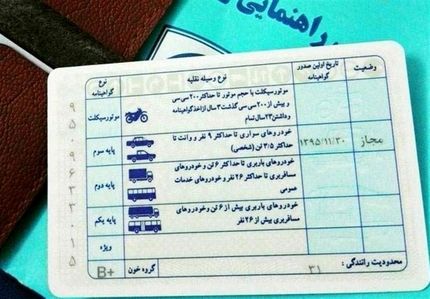 راهنمایی
نوع گواهینامه
نوع وسیله نقلیه
تاریخ اولین صدور گواهینامه
وضعیت
موتورسیکلت
موتورسیکلت با حجم موتور تا حداکثر ۲۰۰ سی سی
و بیش از ۲۰۰ سی سی گذشت ۳ سال از اخذ گواهینامه
وداشتن ۲۳ سال تمام
پایه سوم
خودروهای سواری تا حداکثر ۹ نفر و وانت تا
حداکثر ۳/۵ تن (شخصی)
۱۳۹۵/۱۱/۳۰
مجاز
پایه دوم
خودروهای باربری تا حداکثر ۶ تن و خودروهای
مسافربری تا حداکثر ۲۶ نفر و خودروهای خدمات
عمومی
پایه یکم
خودروهای باربری بیش از ۶ تن و خودروهای
مسافربری بیش از ۲۶ نفر
ویژه
B+
گروه خون
۳۱
محدودیت رانندگی :